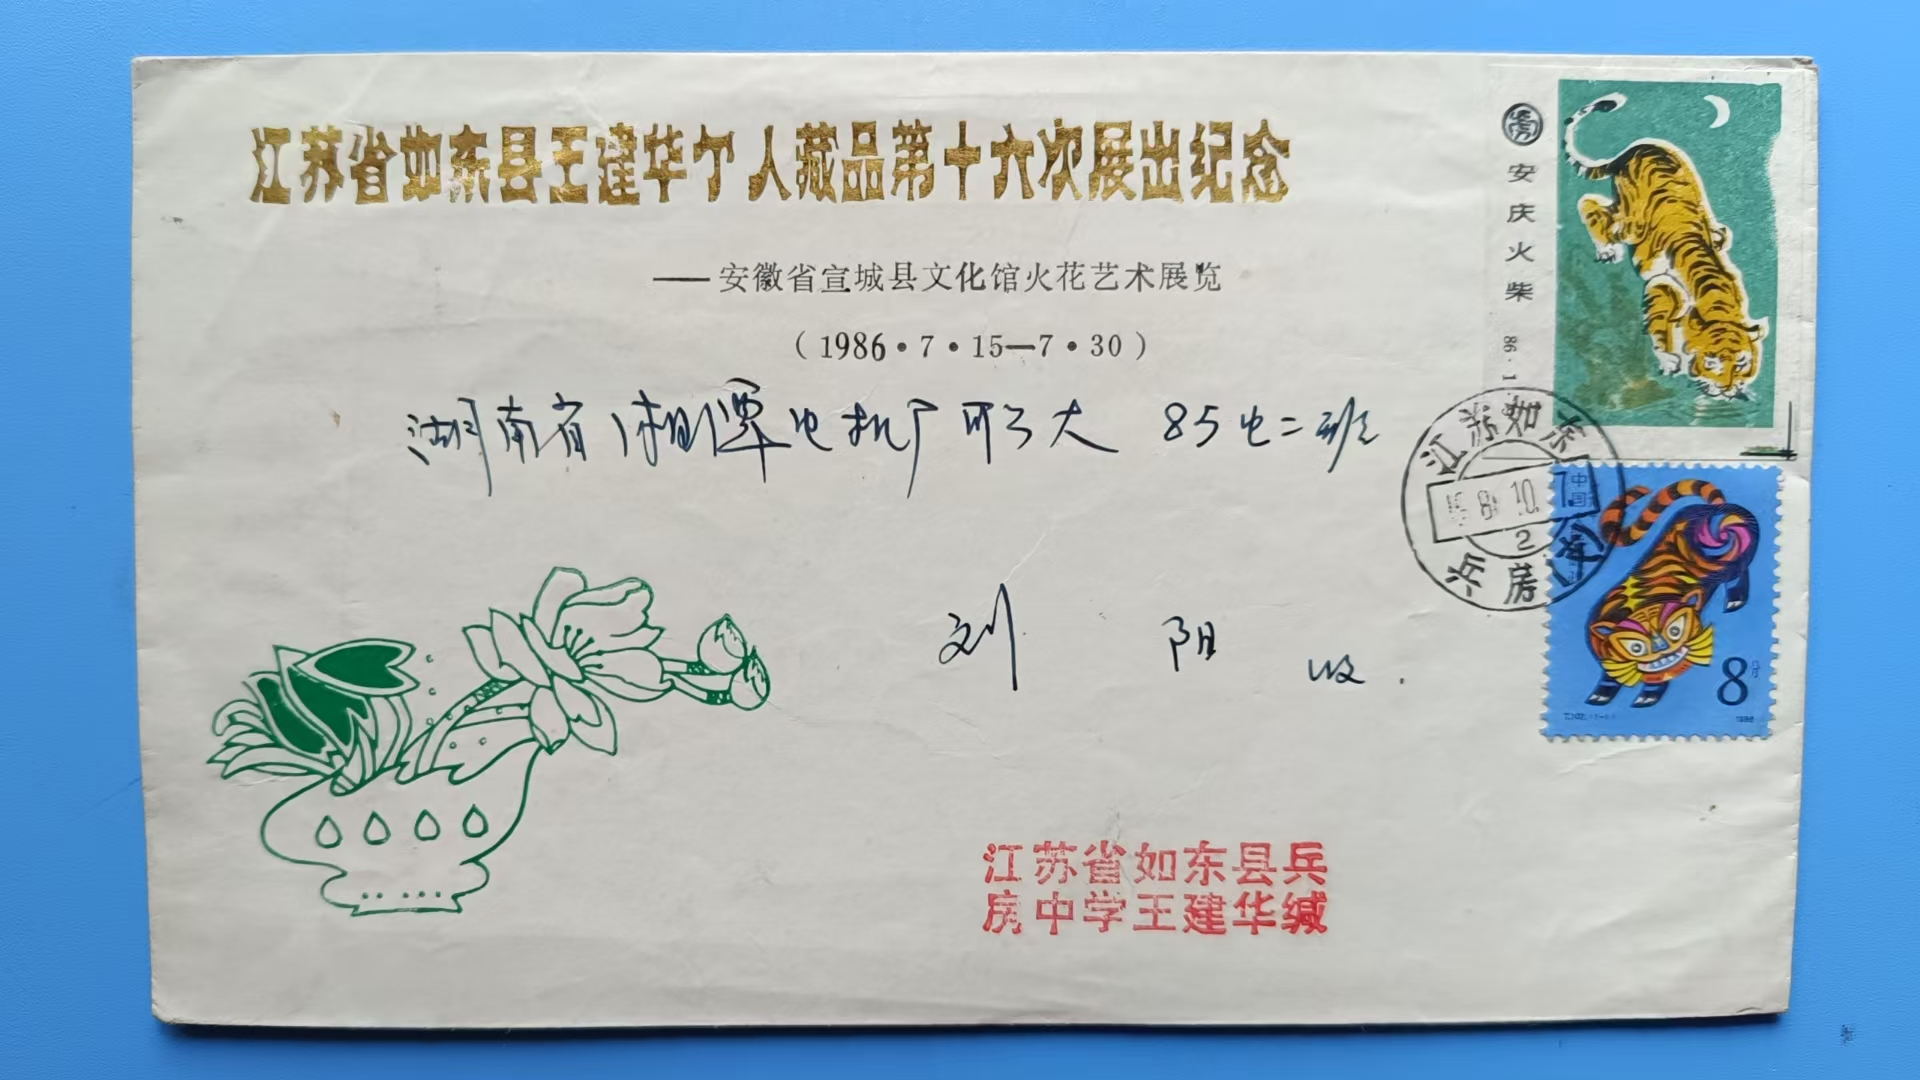 江苏省如东县王建华个人藏品第十六次展出纪念
——安徽省宣城县文化馆火花艺术展览
（1986·7·15—7·30）
湖南省湘潭电机厂职工大 85电二班
刘 阳 收.
虎
安庆火柴 86·1
江苏如东
10
2
兵房
中国
8分
T.107.(1-1)
1986
江苏省如东县兵
房中学王建华缄